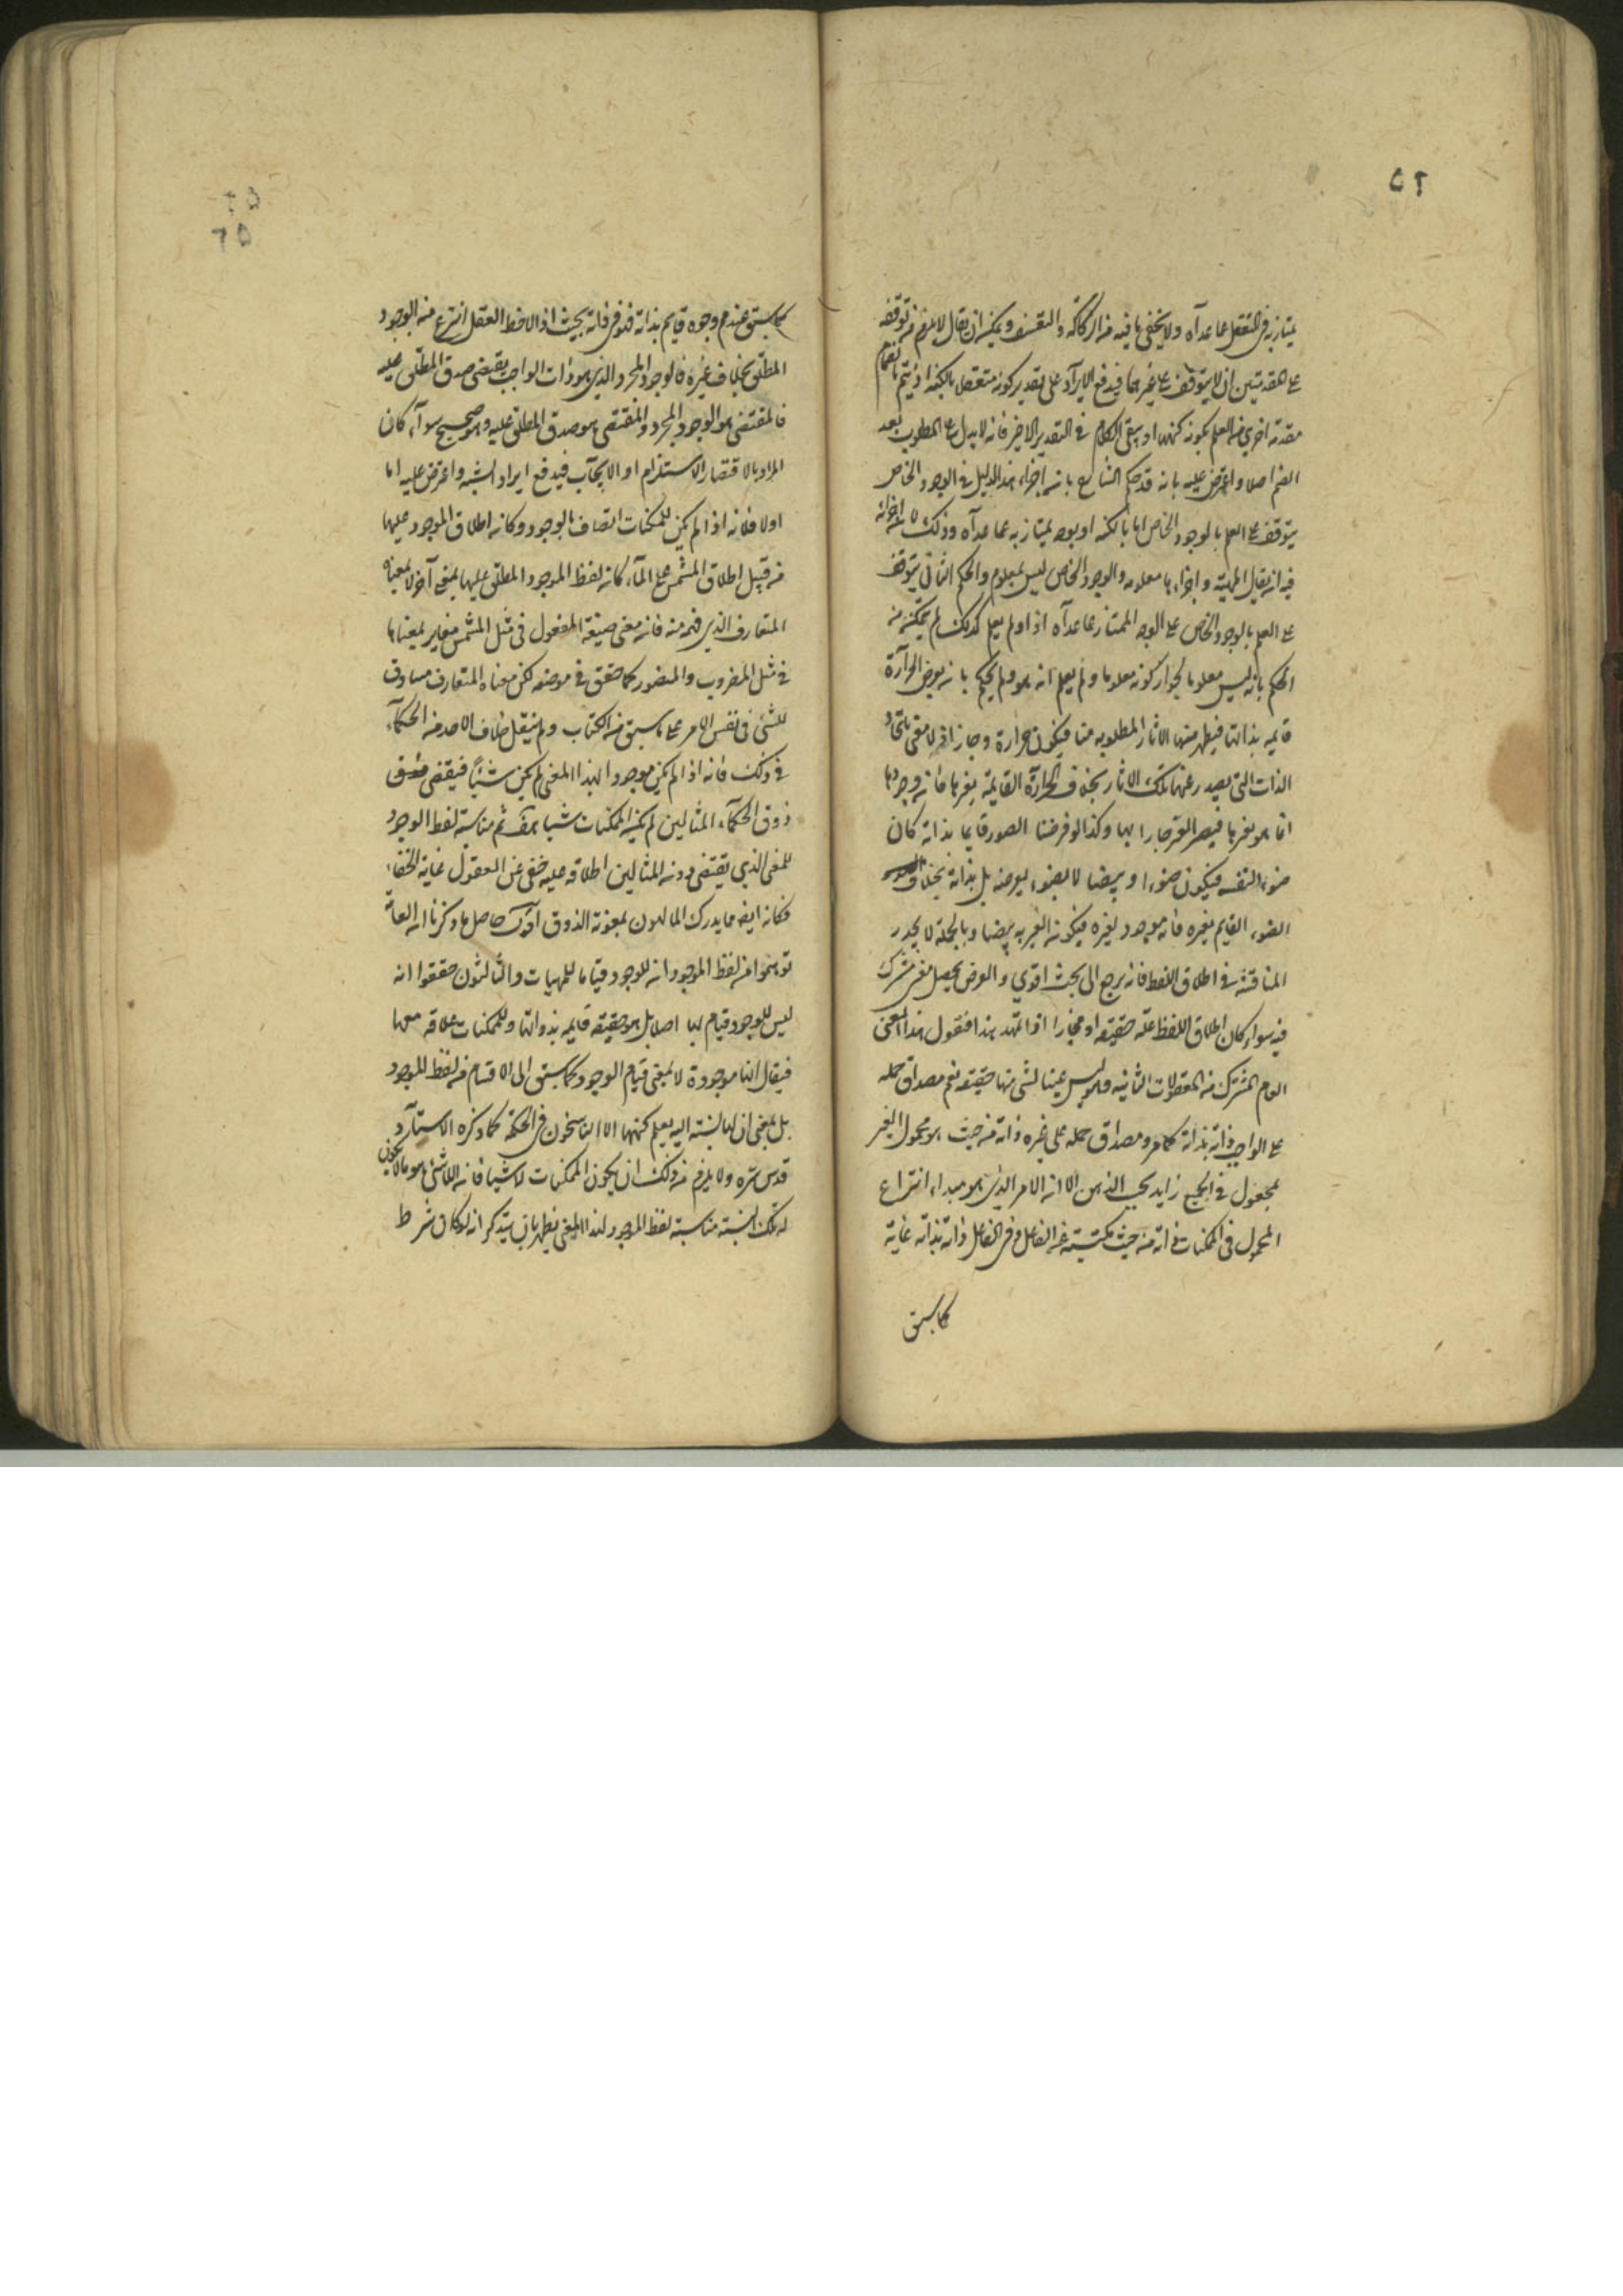 ٥٢
يمتاز به في التعقل عما عداه ولا يخفى ما فيه من الركاكة والتعسف ويمكن ان يقال لا يلزم من توقفه
على مقدمتين ان لا يتوقف على غيرهما فيدفع الايراد على تقدير كونه متعقلا بالكنه اذ يتم بانضمام
مقدمة اخرى من العلم بكونه كنهها او يبقى الكلام في التقدير الاخير فانه لا يدل على المطلوب بعد
الضم اصلا واعترض عليه بانه قد حكم الشارح بانه اجزاء هذا الدليل في الوجود الخاص
يتوقف على العلم بالوجود الخاص اما بالكنه او بوجه يمتاز به عما عداه وذلك لانه اجزائه
فيه ان يقال المهية واجزاءها معلومة والوجود الخاص ليس بمعلوم والحكم الثاني يتوقف
على العلم بالوجود الخاص على الوجه الممتاز عما عداه اذ لو لم يعلم كذلك لم يمكنه من
الحكم بانه ليس معلوما لجواز كونه معلوما ولم يعلم انه هو ولم يحكم بانه بعرض الحرارة
قايمه بذاتها فيظهر منها الاثار المطلوبه منا فيكون حرارة وحارا اذ لا معنى بالحار
الذات التي يصدر عنها تلك الاثار بخلاف الحرارة القايمة بغيرها فانه وجودها
انما هو بغيرها فيصير الغير حارا بها وكذا لو فرضنا الضوء قايما بذاته كان
ضوء النفسه فيكون ضوءا ومضيئا لا بضوء يعرضه بل بذاته بخلاف
الضوء القايم بغيره فانه موجود لغيره فيكون الغير به مضيئا وبالجملة لا يجدر
المناقشة في اطلاق اللفظ فانه يرجع الى بحث لغوي والغرض يحصل معنى مشترك
فيه سواء كان اطلاق اللفظ عليه حقيقه او مجازا اذا تمهد هذا فنقول هذا المعنى
العام المشترك من المعقولات الثانيه وهو ليس عينا لشئ منها حقيقه نعم مصداق حمله
على الواجب ذاته بذاته كما مر ومصداق حمله على غيره ذاته من حيث هو مجعول الغير
مجعول في الجميع زايد بحسب الذهن الا انه الامر الذي هو مبداء انتزاع
المحمول في الممكنات ذاته من حيث مكتسبه من الفاعل وفي الفاعل ذاته بذاته غاية
كما سبق
٥٢
٥٢
كما سبق عندهم وجود قايم بذاته فهو في ذاته بحيث اذا لاحظ العقل انتزع منه الوجود
المطلق بخلاف غيره فالوجود المجرد الذي هو ذات الواجب يقتضي صدق المطلق عليه
فالمقتضي هو الوجود المجرد والمقتضى هو صدق المطلق عليه وهو صحيح سواء كان
المراد بالاقتضاء الاستلزام او الايجاب فيدفع ايراد الشبه واعترض عليه اما
اولا فلانه اذا لم يكن للممكنات اتصاف بالوجود وكان اطلاق الموجود عليها
من قبيل اطلاق المشمس على الماء كان لفظ الموجود المطلق عليها بمعنى آخر لا بمعناه
المتعارف الذي فهمه منه فانه معنى صيغة المفعول في مثل المشمس مغاير لمعناها
في مثل المضروب والمنصور كما حقق في موضعه لكن معناه المتعارف مساوق
للشئ في نفس الامر على ما سبق من الكتاب ولم ينقل خلاف لاحد من الحكماء
في ذلك فانه اذا لم يكن موجودا بهذا المعنى لم يكن شيئا فيقتضي
ذوق الحكماء المتالهين لم يكن الممكنات شيئا ثم مناسبة لفظ الوجود
للمعنى الذي يقتضي ذوق المتالهين اطلاقه عليه خفي عن العقول غاية الخفاء
فكانه ايضا مما يدرك المتالهون بمعونة الذوق اقول حاصل ما ذكرنا ان العامة
توهموا من لفظ الموجود انه للوجود قياما للمهيات والمتالهون حققوا انه
ليس للوجود قيام بها اصلا بل هو حقيقه قايمه بذواتها وللممكنات علاقه معها
فيقال انها موجودة لا بمعنى قيام الوجود كما سبق الى الافهام من لفظ الموجود
بل بمعنى ان لها نسبة اليه يعلم كنهها الا الراسخون في الحكمة كما ذكره الاستاد
قدس سره ولا يلزم من ذلك ان يكون الممكنات لا شيئا فانه اللاشئ هو ما لا يكون
له تلك النسبة مناسبة لفظ الموجود لهذا المعنى يظهر بان يتذكر انه لو كان شرط